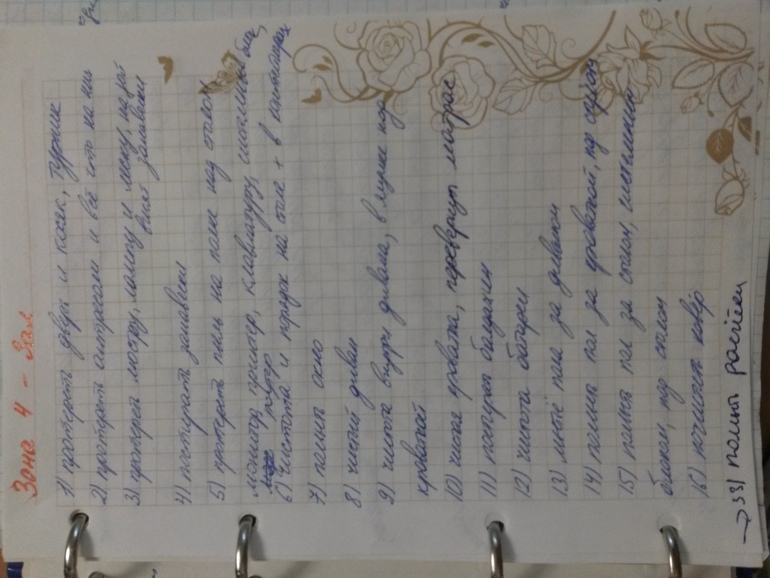 Зона 4 - Зал
1) протереть дверь и косяк, турник
2) протереть антресоли и всё что на них
3) протереть люстру, лампу и лампу, на ней
висят занавески
4) постирать занавески
5) протереть пыль на полке над столом
монитор, принтер, клавиатуру, системный блок,
роутер
6) чистота и порядок на столе + в контейнерах
7) помыть окно
8) чистый диван
9) чистота внутри дивана, в ящике под
кроватью
10) чистая кровать, перевернуть матрас
11) постирать балдахин
12) чистота батареи
13) мытьё пола за диваном
14) помыть пол за кроватью, под шкафом
15) помыть пол за столом, системным
блоком, под столом
16) почистить ковёр
→ 33) полить растения